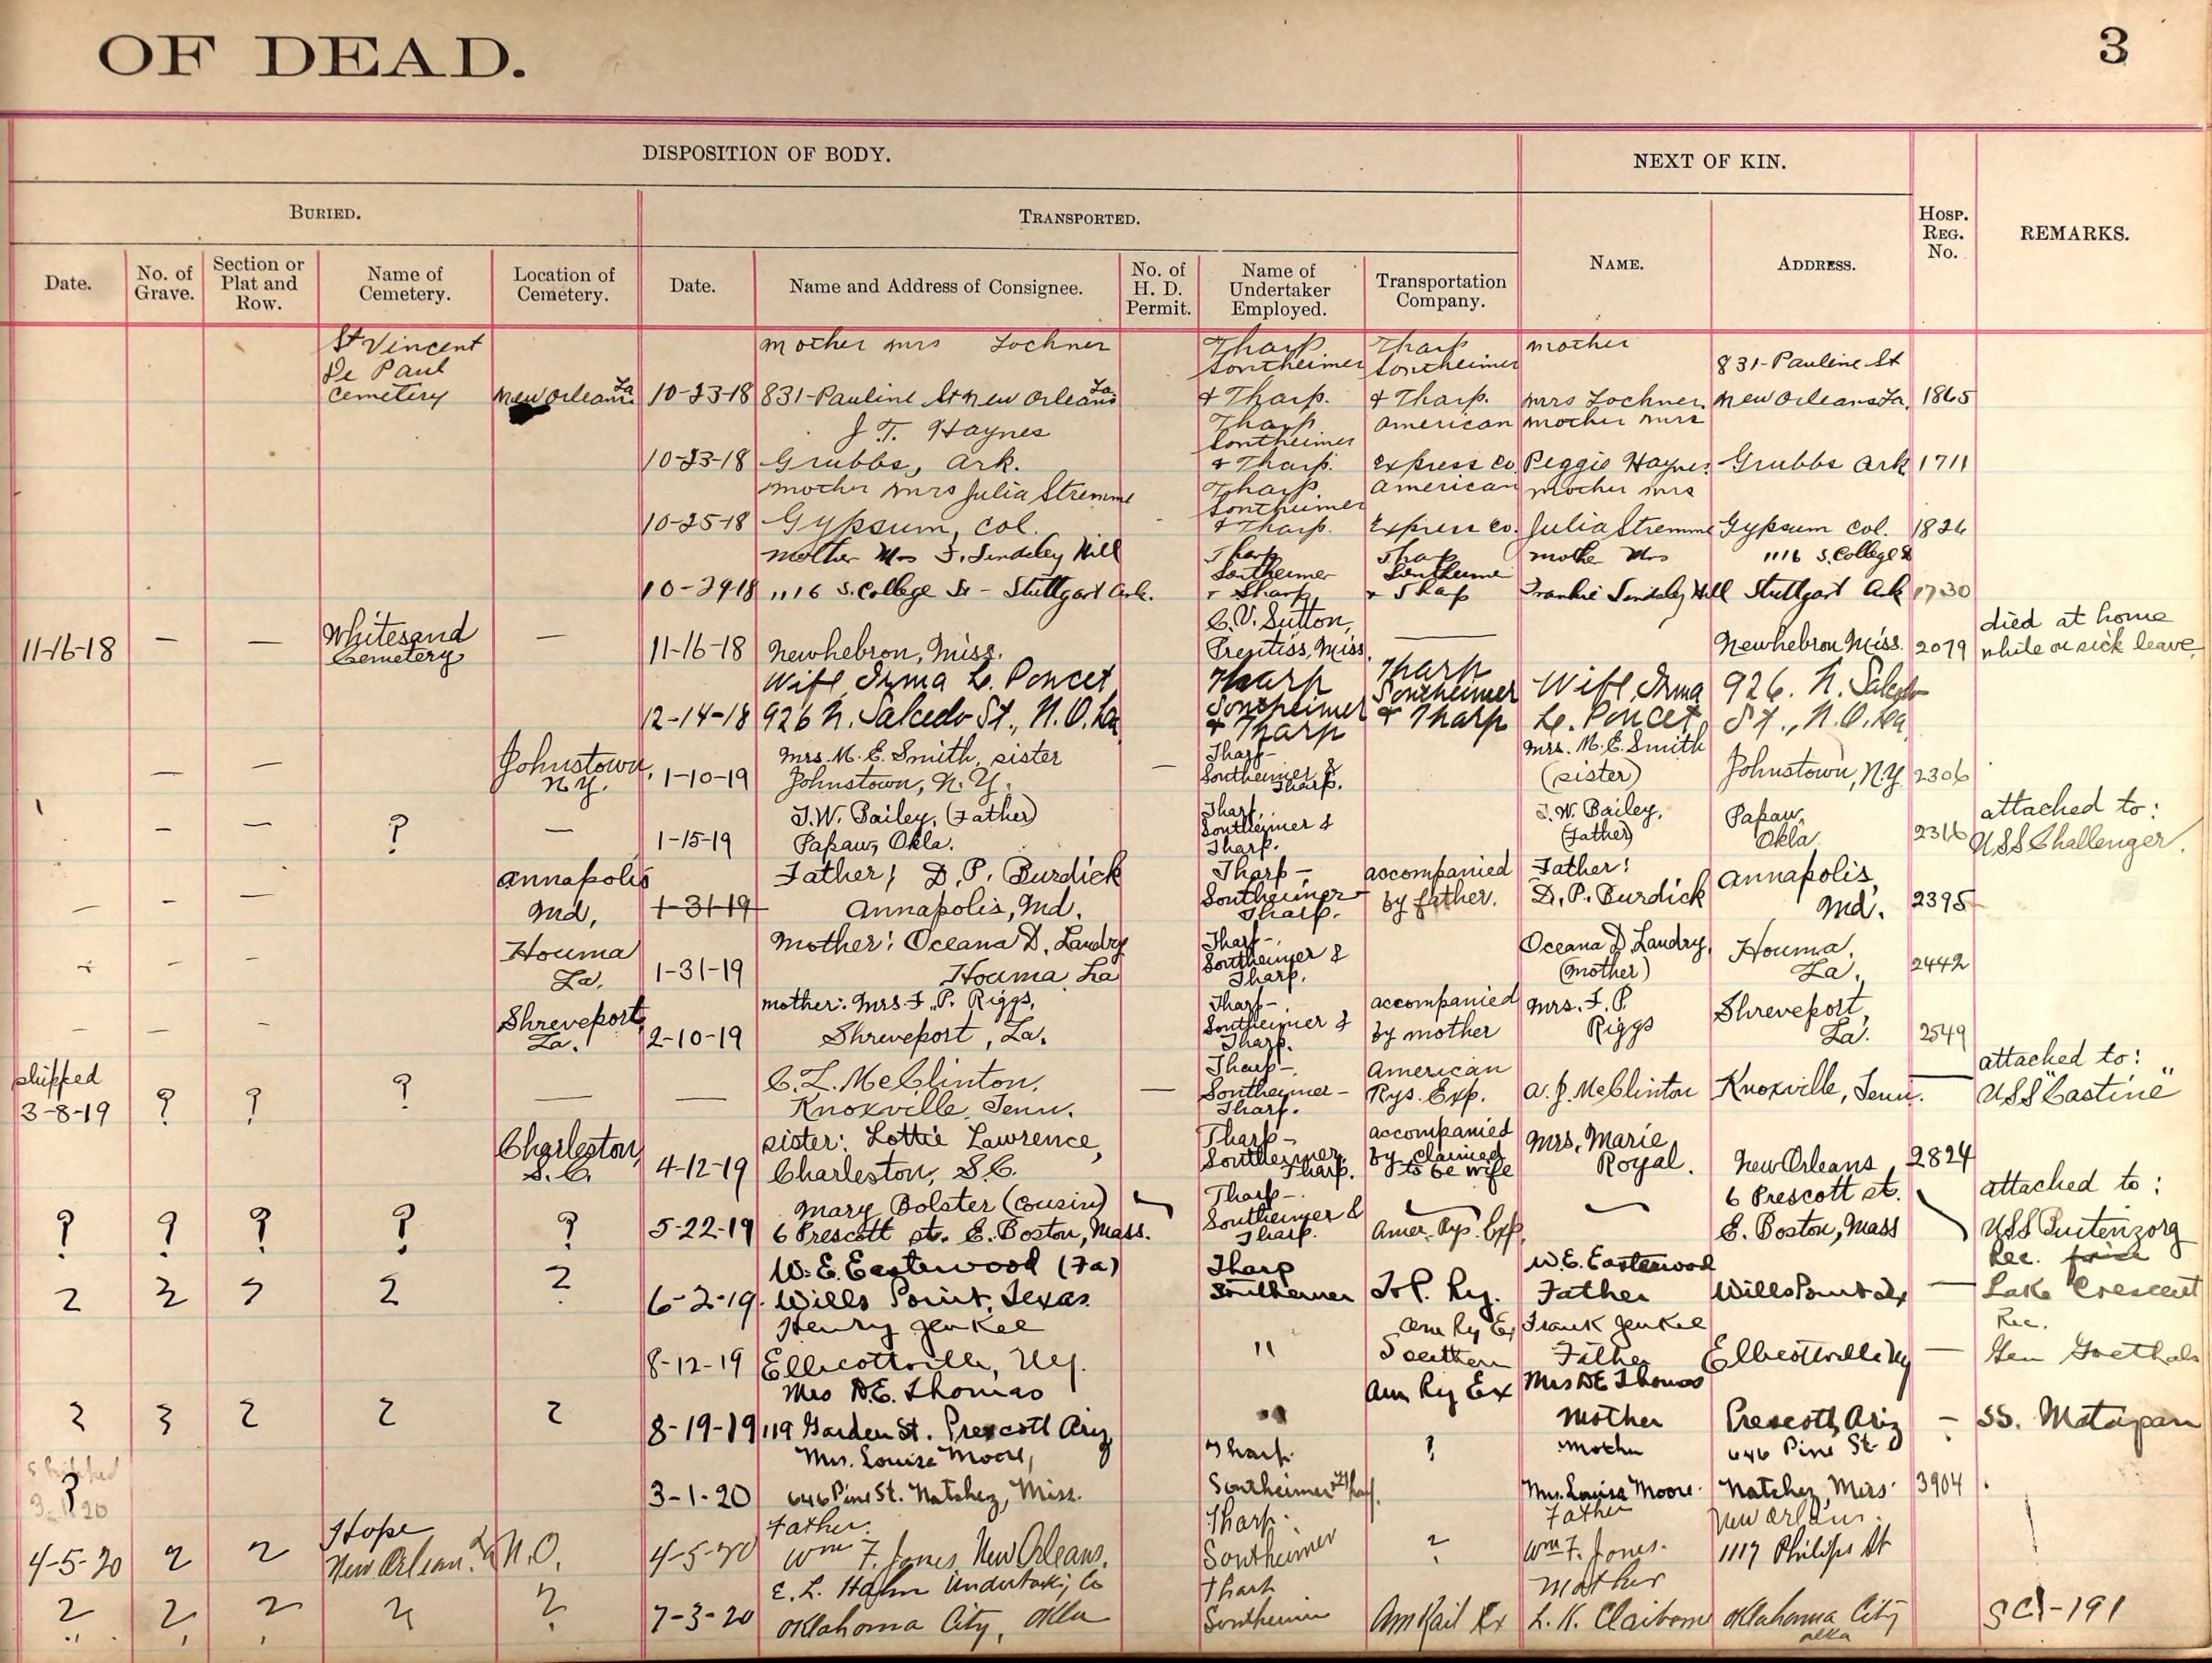 OF DEAD.
3
DISPOSITION OF BODY.
NEXT OF KIN.
BURIED.
TRANSPORTED.
HOSP. REG. No.
REMARKS.
Date.
No. of Grave.
Section or Plat and Row.
Name of Cemetery.
Location of Cemetery.
Date.
Name and Address of Consignee.
No. of H. D. Permit.
Name of Undertaker Employed.
Transportation Company.
NAME.
ADDRESS.
St Vincent mother mrs Lochner Tharp Tharp mother
De Paul Sontheimer Sontheimer 831-Pauline St
Cemetery New Orleans La 10-23-18 831-Pauline St New Orleans La & Tharp. & Tharp. mrs Lochner. New Orleans La. 1865
J. T. Haynes Tharp American mother mrs
Sontheimer
10-23-18 Grubbs, Ark. & Tharp. Express Co. Peggie Haynes. Grubbs Ark 1711
mother mrs Julia Stremme Tharp American mother mrs
Sontheimer
10-25-18 Gypsum, Col. & Tharp. Express Co. Julia Stremme Gypsum Col. 1826
mother Mrs F. Lindsley Hill Tharp Tharp mothe Mrs 1116 S. College St
Sontheimer Sontheime
10-29-18 1116 S. College St - Stuttgart Ark. & Tharp & Tharp Frankie Lindsley Hill Stuttgart Ark 1730
C. V. Sutton, died at home
11-16-18 — — Whitesand Cemetery — 11-16-18 Newhebron, Miss. Prentiss, Miss. — Newhebron Miss. 2079 while on sick leave
Wife Irma L. Poncet Tharp Tharp Wife Irma 926. N. Salcedo
Sontheimer Sontheimer
12-14-18 926 N. Salcedo St., N.O. La & Tharp & Tharp L. Poncet St., N.O. La
Johnstown, Mrs. M. E. Smith, sister Tharp- Mrs. M. E. Smith
— — N.Y. 1-10-19 Johnstown, N.Y. — Sontheimer & Tharp. (sister) Johnstown, N.Y. 2306
J. W. Bailey, (Father) Tharp, J. W. Bailey, Papaw, attached to:
— — ? — 1-15-19 Papaw, Okla. Sontheimer & Tharp. (Father) Okla. 2316 USS Challenger.
Annapolis Father; D. P. Burdick Tharp- accompanied Father: Annapolis,
— — — Md, 1-31-19 Annapolis, Md. Sontheimer- Tharp. by father. D. P. Burdick Md. 2395
Houma Mother: Oceana D. Landry Tharp-, Oceana D. Landry, Houma,
— — — La. 1-31-19 Houma La Sontheimer & Tharp. (mother) La. 2442
Shreveport, mother: Mrs. F. P. Riggs, Tharp-, accompanied Mrs. F. P. Shreveport,
— — — La. 2-10-19 Shreveport, La. Sontheimer & Tharp. by mother Riggs La. 2549
shipped C. L. McClinton, Tharp-, American attached to:
3-8-19 ? ? ? — — Knoxville, Tenn. — Sontheimer- Tharp. Rys. Exp. A. J. McClinton Knoxville, Tenn. — USS "Castine"
Charleston, sister: Lottie Lawrence, Tharp- accompanied Mrs. Marie
S.C. 4-12-19 Charleston, S.C. Sontheimer, Tharp. by claimed to be wife Royal. New Orleans 2824
Mary Bolster (cousin) Tharp-. 6 Prescott st. attached to:
? ? ? ? ? 5-22-19 6 Prescott st. E. Boston, Mass. Sontheimer & Tharp. Amer. Rys. Exp. E. Boston, Mass USS Buitenzorg
W. E. Easterwood (Fa) Tharp W. E. Easterwood Rec.
? ? ? ? ? 6-2-19. Wills Point, Texas. Sontheimer T.P. Ry. Father Wills Point Tex — Lake Crescent
Henry Jenkel Am Ry Ex Frank Jenkel Rec.
8-12-19 Ellicottville, N.Y. " Southern Father Ellicottville Ny — Gen Goethals
Mrs D.E. Thomas Am Ry Ex Mrs DE Thomas
? ? ? ? ? 8-19-19 119 Garden St. Prescott Ariz " Mother Prescott, Ariz — SS. Matapan
shipped Mrs. Louise Moore, Tharp. ? Mother 646 Pine St.
3-1-20 ? 3-1-20 646 Pine St. Natchez, Miss. Sontheimer & Thar. Mrs. Louise Moore. Natchez, Miss. 3904
Hope Father. Tharp. Father New Orleans.
4-5-20 ? ? New Orleans. La N.O. 4-5-20 Wm F. Jones New Orleans. Sontheimer ? Wm F. Jones. 1117 Philips St
E. L. Hahn Undertaking Co Tharp Mother
? ? ? ? ? 7-3-20 Oklahoma City, Okla Sontheimer Am Rail Ex L. K. Claiborne Oklahoma City Okla SC-191